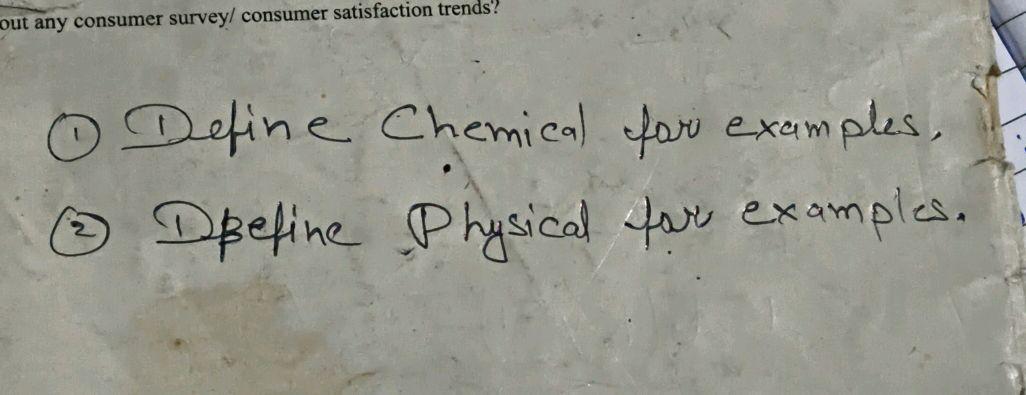 out any consumer survey/ consumer satisfaction trends?
① Define Chemical for examples,
② Dbefine Physical for examples.